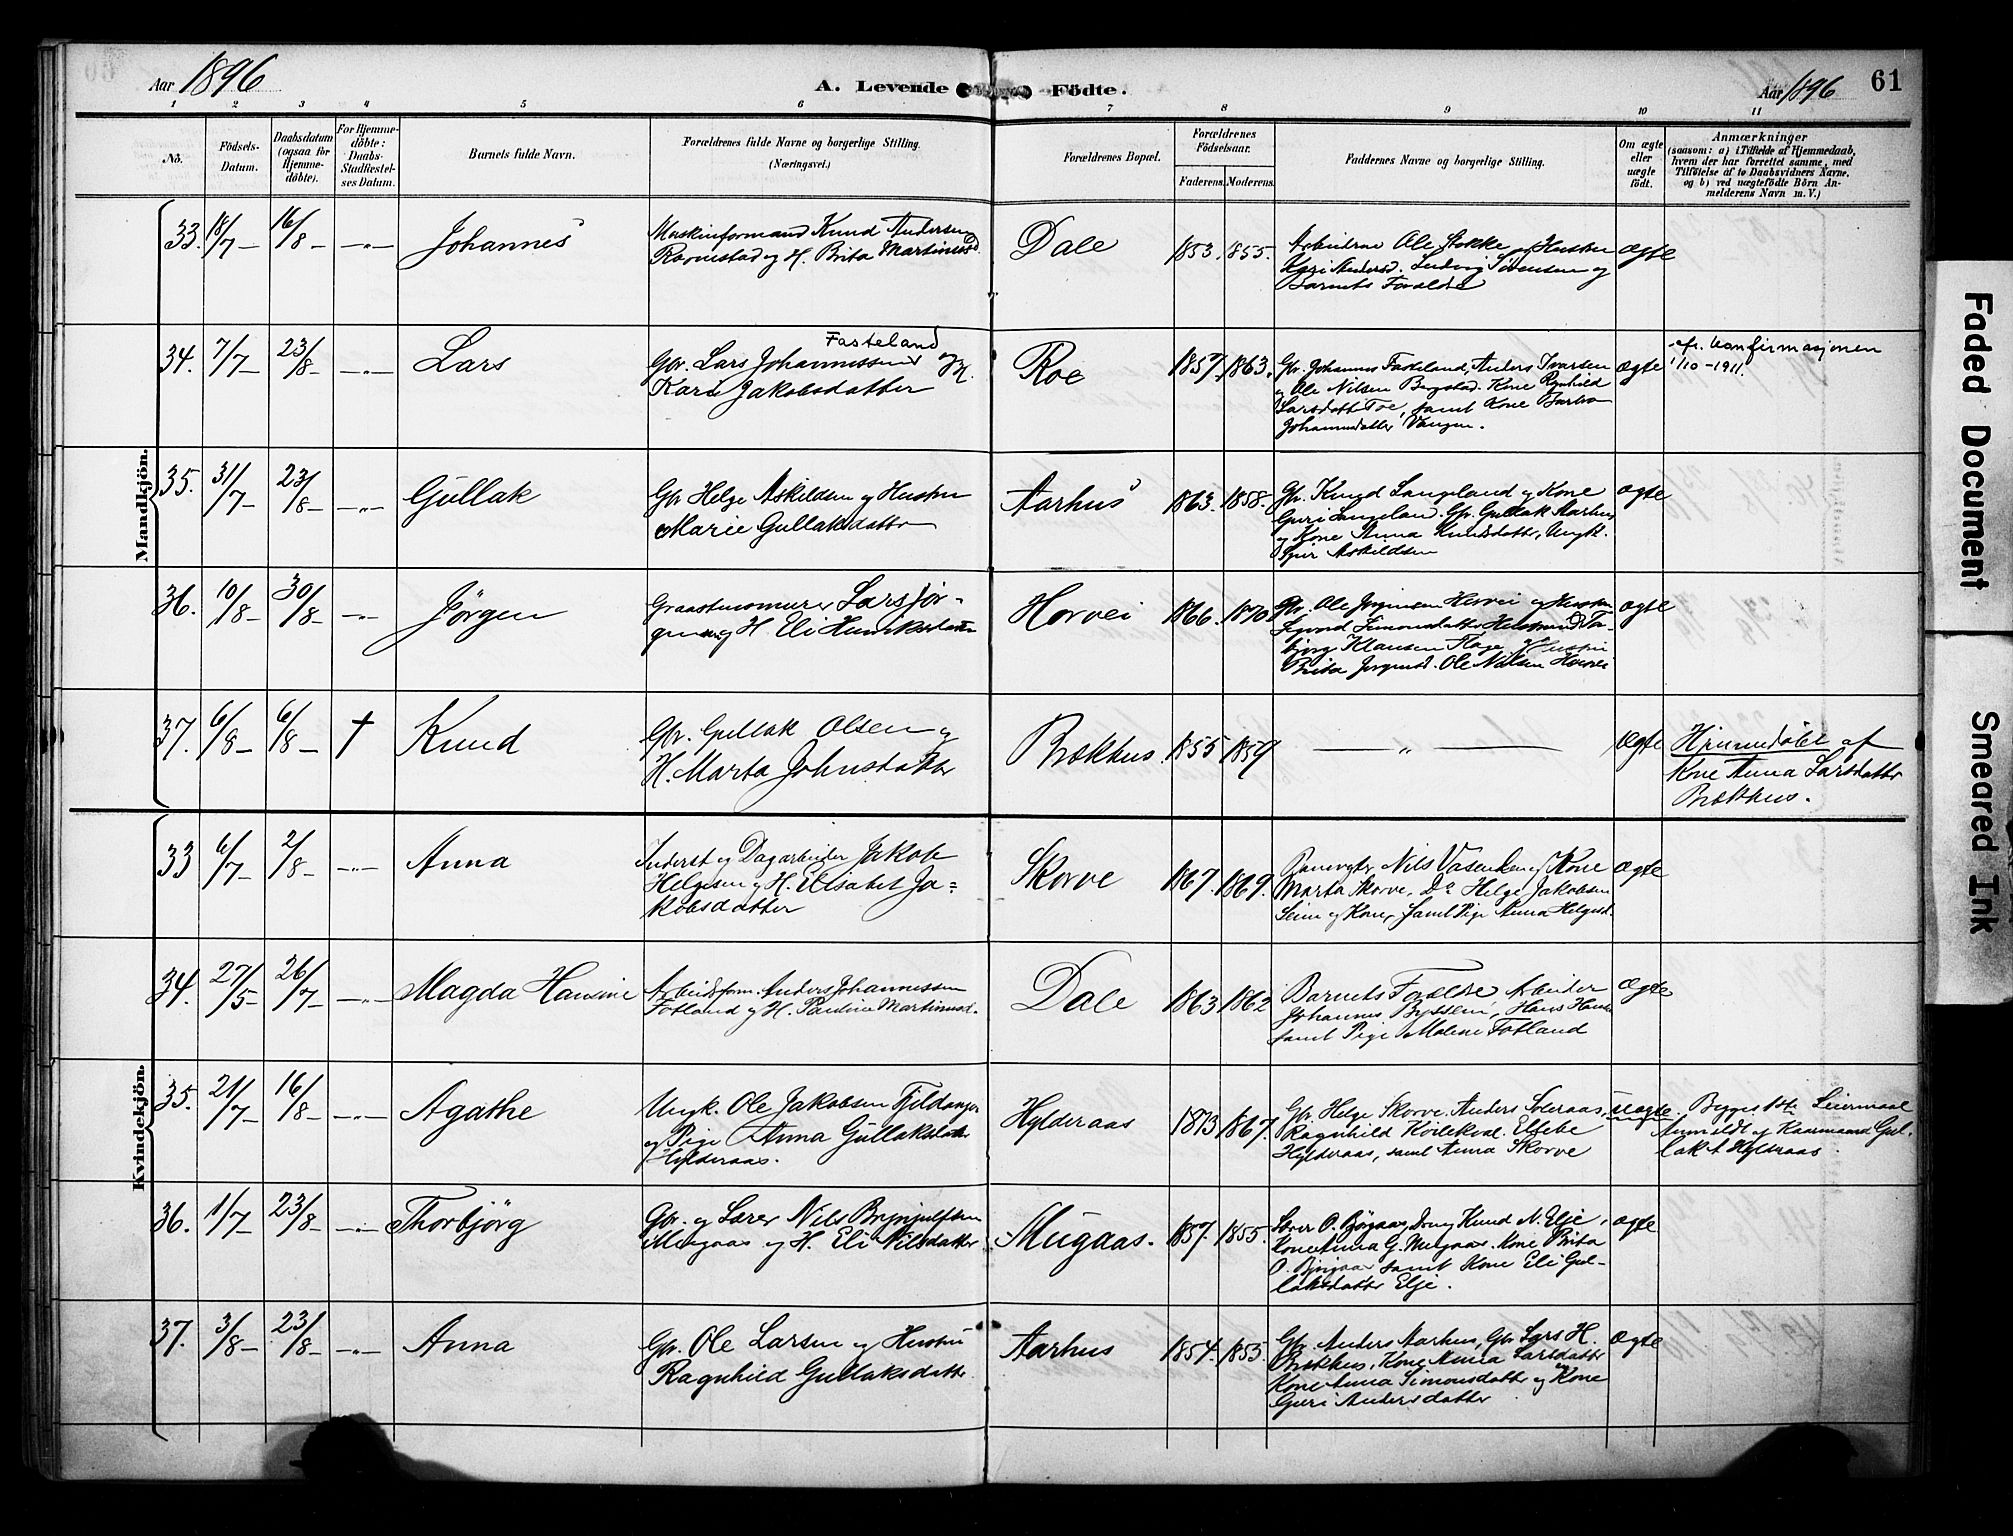 Aar 1896
A. Levende Fødte.
Aar 1896
61
1 2 3 4 5 6 7 8 9 10 11
No.
Fødsels-
Datum.
Daabsdatum
(ogsaa for
Hjemme-
døbte).
For Hjemme-
døbte:
Daabs-
Stadfæstel-
ses Datum.
Barnets fulde Navn.
Forældrenes fulde Navne og borgerlige Stilling.
(Næringsvei.)
Forældrenes Bopæl.
Forældrenes
Fødselsaar.
Faderens. Moderens.
Faddernes Navne og borgerlige Stilling.
Om ægte
eller
uægte
født.
Anmærkninger
(saasom: a) i Tilfælde af Hjemmedaab,
hvem der har forrettet samme, med
Tilføielse af to Daabsvidners Navne.
og b) ved uægtefødte Börn An-
melderens Navn m. V.)
Mandkjön.
33. 18/7 – 16/8 – –„– Johannes
Maskinformand Knud Andersen
Ravnestad og H. Brita Martinusd
Dale 1853. 1855.
Arbeiderne Ole Stokke og Hustru
Kari Andersd. Ludvig Sørensen og
Barnets Forældre
Ægte
34. 7/7 – 23/8 – –„– Lars
Fasteland
Gbr. Lars Johannessen og H.
Kari Jakobsdatter
Roe 1857. 1863.
Gbr. Johannes Fasteland, Anders Ivarsen
og Ole Nilsen Bergstad. Kone Ragnhild
Larsdatter Foe, samt Kone Barbro
Johannesdatter Vangen.
Ægte
afr. konfirmasjonen
1/10 – 1911.
35. 31/7 – 23/8 – –„– Gullak
Gbr Helge Askildsen og Hustru
Marie Gullaksdatter
Aarhus 1863. 1858.
Gbr. Knud Langeland og Kone
Guri Langeland. Gbr. Gullak Aarhus
og Kone Anna Knudsdatter, Ungk.
Askildsen
Ægte
36. 10/8 – 30/8 – –„– Jörgen
Graastensmurer Lars Jör-
gensen og H. Eli Henriksdatter
Horvei 1866. 1870.
Gbr. Ole Jörgensen Horvei og Hustru
Simonsdatter
Klausen Flage og Hustru
Brita Jörgensd. Ole Nilsen Horvei
Ægte
37. 6/8 – 6/8 – † Knud
Gbr. Gullak Olsen og
H. Marta Johnsdatter
Brækhus. 1855 1859
— „ —
Ægte
Hjemmedøbt af
Kone Anna Larsdatter
Brækhus.
Kvindekjön.
33 6/7 – 2/8 – –„– Anna
Inderst og Dagarbeider Jakob
Helgesen og H. Elisabet Ja=
kobsdatter
Skorve 1867. 1869.
Nils og Kone
Marta Skorve. Do Helge Jakobsen
Seim og Kone, samt Pige Anna Helgesd.
Ægte
34. 27/5 – 26/7 – –„– Magda Hansine
Arbeidsform. Anders Johannessen
Fotland og H. Pauline Martinusd.
Dale 1863 1862
Barnets Forældre, Arbeider
Johannes, Hans
samt Pige Malene Fotland
Ægte
35. 21/7 – 16/8 – –„– Agathe
Ungk. Ole Jakobsen Fjeldanger
og Pige Anna Gullaksdatter
Hylderaas.
Hylderaas 1873 1867.
Gbr. Helge Skorve. Anders Soleraas,
Ragnhild Koilekval. Elsebe
Hylderaas, samt Anna Skorve
uægte.
Begges 1ste Leiermaal
Anmeldt og Kaarmand Gul-
lak A Hylderaas.
36. 1/7 – 23/8 – –„– Thorbjörg
Gbr. og Lærer Nils Brynjulfsen
Mugaas og H. Eli Nilsdatter
Mugaas. 1857. 1855.
Lærer O. Björgaas, Dreng Knud N. Elje,
Kone Anna G. Mugaas. Kone Brita
O. Björgaas samt Kone Eli Gul-
laksdatter Elje.
ægte
37. 3/8 – 23/8 – –„– Anna
Gbr. Ole Larsen og Hustru
Ragnhild Gullaksdatter
Aarhus 1854. 1853.
Gbr. Anders Aarhus, Gbr Lars H.
Brækhus, Kone Anna Larsdatter
Kone Anna Simonsdatter og Kone
Guri Andersdatter
Ægte
Faded Document
Smeared Ink